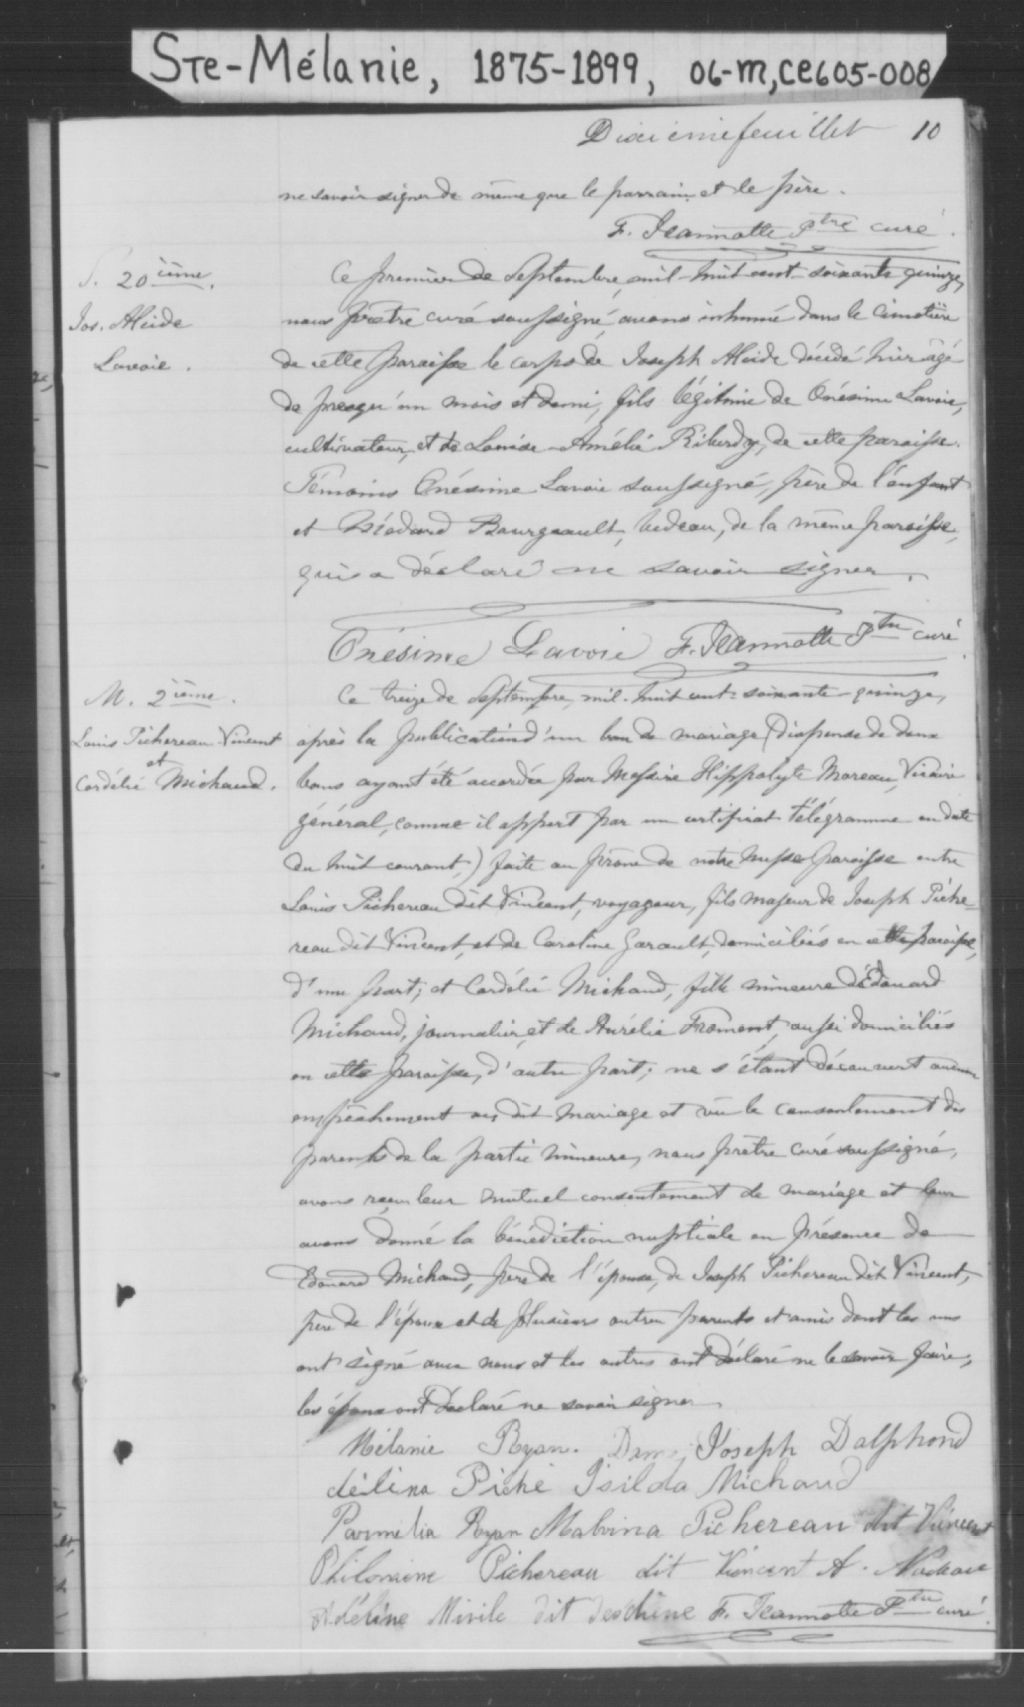 Ste-Mélanie, 1875-1899, 06-M,CE605-008
Dixième feuillet 10
ne savoir signer de même que le parrain et le père.
F. Jeannotte Ptre curé.
S. 20ième.
Jos. Alcide
Lavoie.
Ce premier de Septembre, mil-huit cent-soixante quinze,
nous prêtre curé soussigné, avons inhumé dans le cimetière
de cette paroisse le corps de Joseph Alcide décédé hier âgé
de presqu'un mois et demi, fils légitime de Onésime Lavoie,
cultivateur, et de Louise-Amélie Riberdy, de cette paroisse.
Témoins Onésime Lavoie soussigné, père de l'enfant
et Médard Bourgeault, bedeau, de la même paroisse,
qui a déclaré ne savoir signer.
Onésime Lavoie F. Jeannotte Ptre curé
M. 2ième.
Louis Pichereau Vincent
et
Cordélie Michaud.
Ce treize de Septembre, mil-huit cent-soixante-quinze,
après la publication d'un ban de mariage (Dispense de deux
bans ayant été accordée par Messire Hippolyte Moreau, Vicaire
général, comme il appert par un certificat télégramme en date
du huit courant,) faite au prône de notre messe paroissiale entre
Louis Pichereau dit Vincent, voyageur, fils majeur de Joseph Piche-
reau dit Vincent, et de Caroline Garault, domiciliés en cette paroisse,
d'une part; et Cordélie Michaud, fille mineure d'Edouard
Michaud, journalier, et de Aurélie Froment, aussi domiciliés
en cette paroisse, d'autre part; ne s'étant découvert aucun
empêchement au dit mariage et vu le consentement des
parents de la partie mineure, nous prêtre curé soussigné,
avons reçu leur mutuel consentement de mariage et leur
avons donné la bénédiction nuptiale en présence de
Edouard Michaud, père de l'épouse, de Joseph Pichereau dit Vincent,
père de l'époux et de plusieurs autres parents et amis dont les uns
ont signé avec nous et les autres ont déclaré ne le savoir faire,
les époux ont déclaré ne savoir signer.
Mélanie Ryan. Joseph Dalphond
délina Piché Isilda Michaud
Parmélia Ryan Malvina Pichereau dit Vincent
Philomine Pichereau dit Vincent A. Nadeau
Adéline Mivile dit deschène F. Jeannotte Ptre curé.